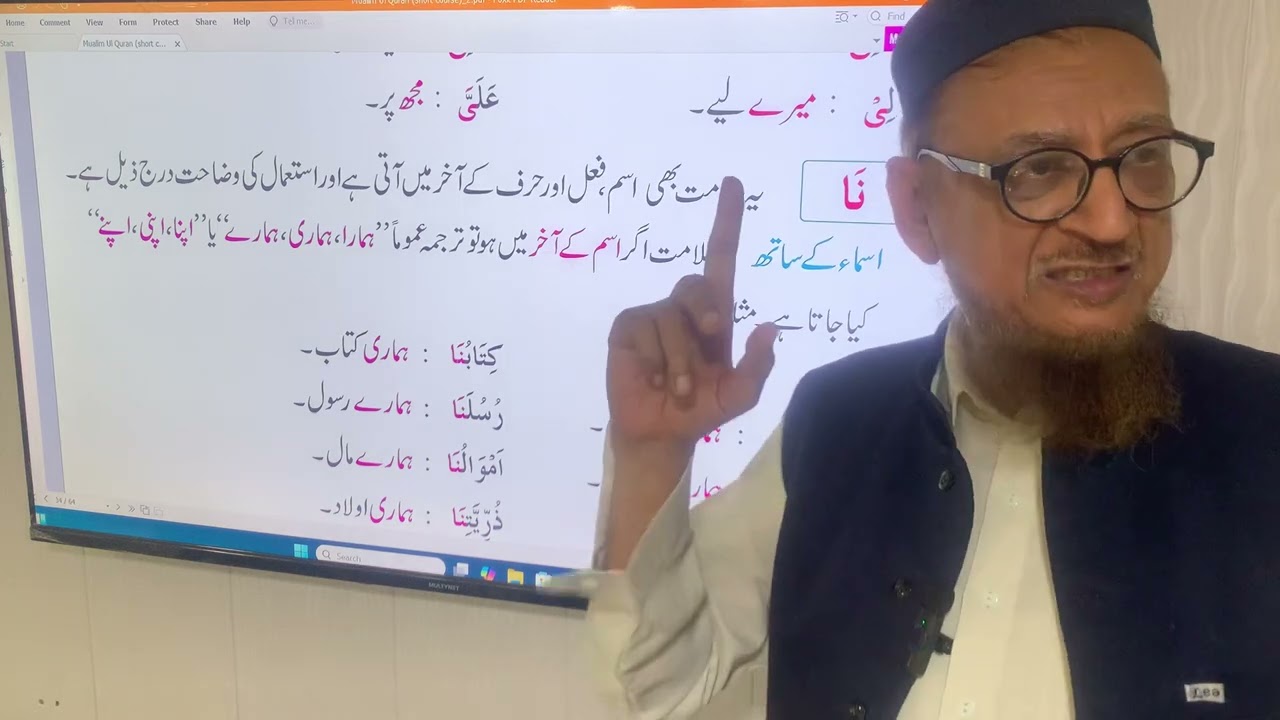 Mualim Ul Quran (short course)_2.pdf - Foxit PDF Reader
Home Comment View Form Protect Share Help Tell me... Find
Start Mualim Ul Quran (short c... ×
لِیْ : میرے لیے۔ عَلَیَّ : مجھ پر۔
نَا یہ مت بھی اسم، فعل اور حرف کے آخر میں آتی ہے اور استعمال کی وضاحت درج ذیل ہے۔
اسماء کے ساتھ لامت اگر اسم کے آخر میں ہو تو ترجمہ عموماً ”ہمارا، ہماری، ہمارے“ یا ”اپنا، اپنی، اپنے“
کیا جاتا ہے۔ مثلا
کِتَابُنَا : ہماری کتاب۔
رُسُلَنَا : ہمارے رسول۔
اَمْوَالُنَا : ہمارے مال۔
ذُرِّیَّتِنَا : ہماری اولاد۔
54 / 64
Search
MULTYNET
Lee